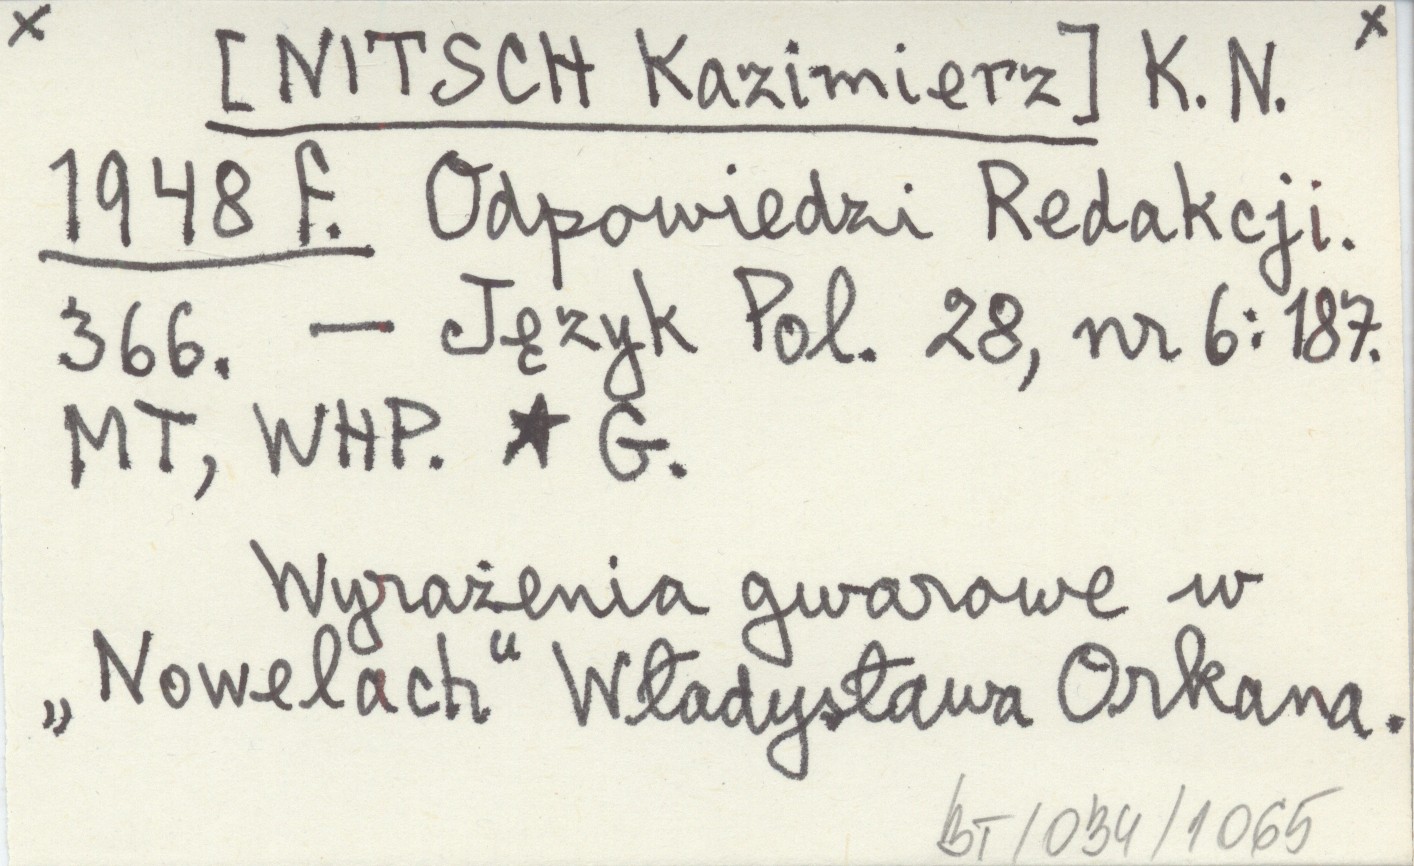 x [NITSCH Kazimierz] K. N. x
1948 f. Odpowiedzi Redakcji.
366. — Język Pol. 28, nr 6: 187.
MT, WHP. ★ G.
Wyrażenia gwarowe w
„Nowelach“ Władysława Orkana.
BT/034/1065